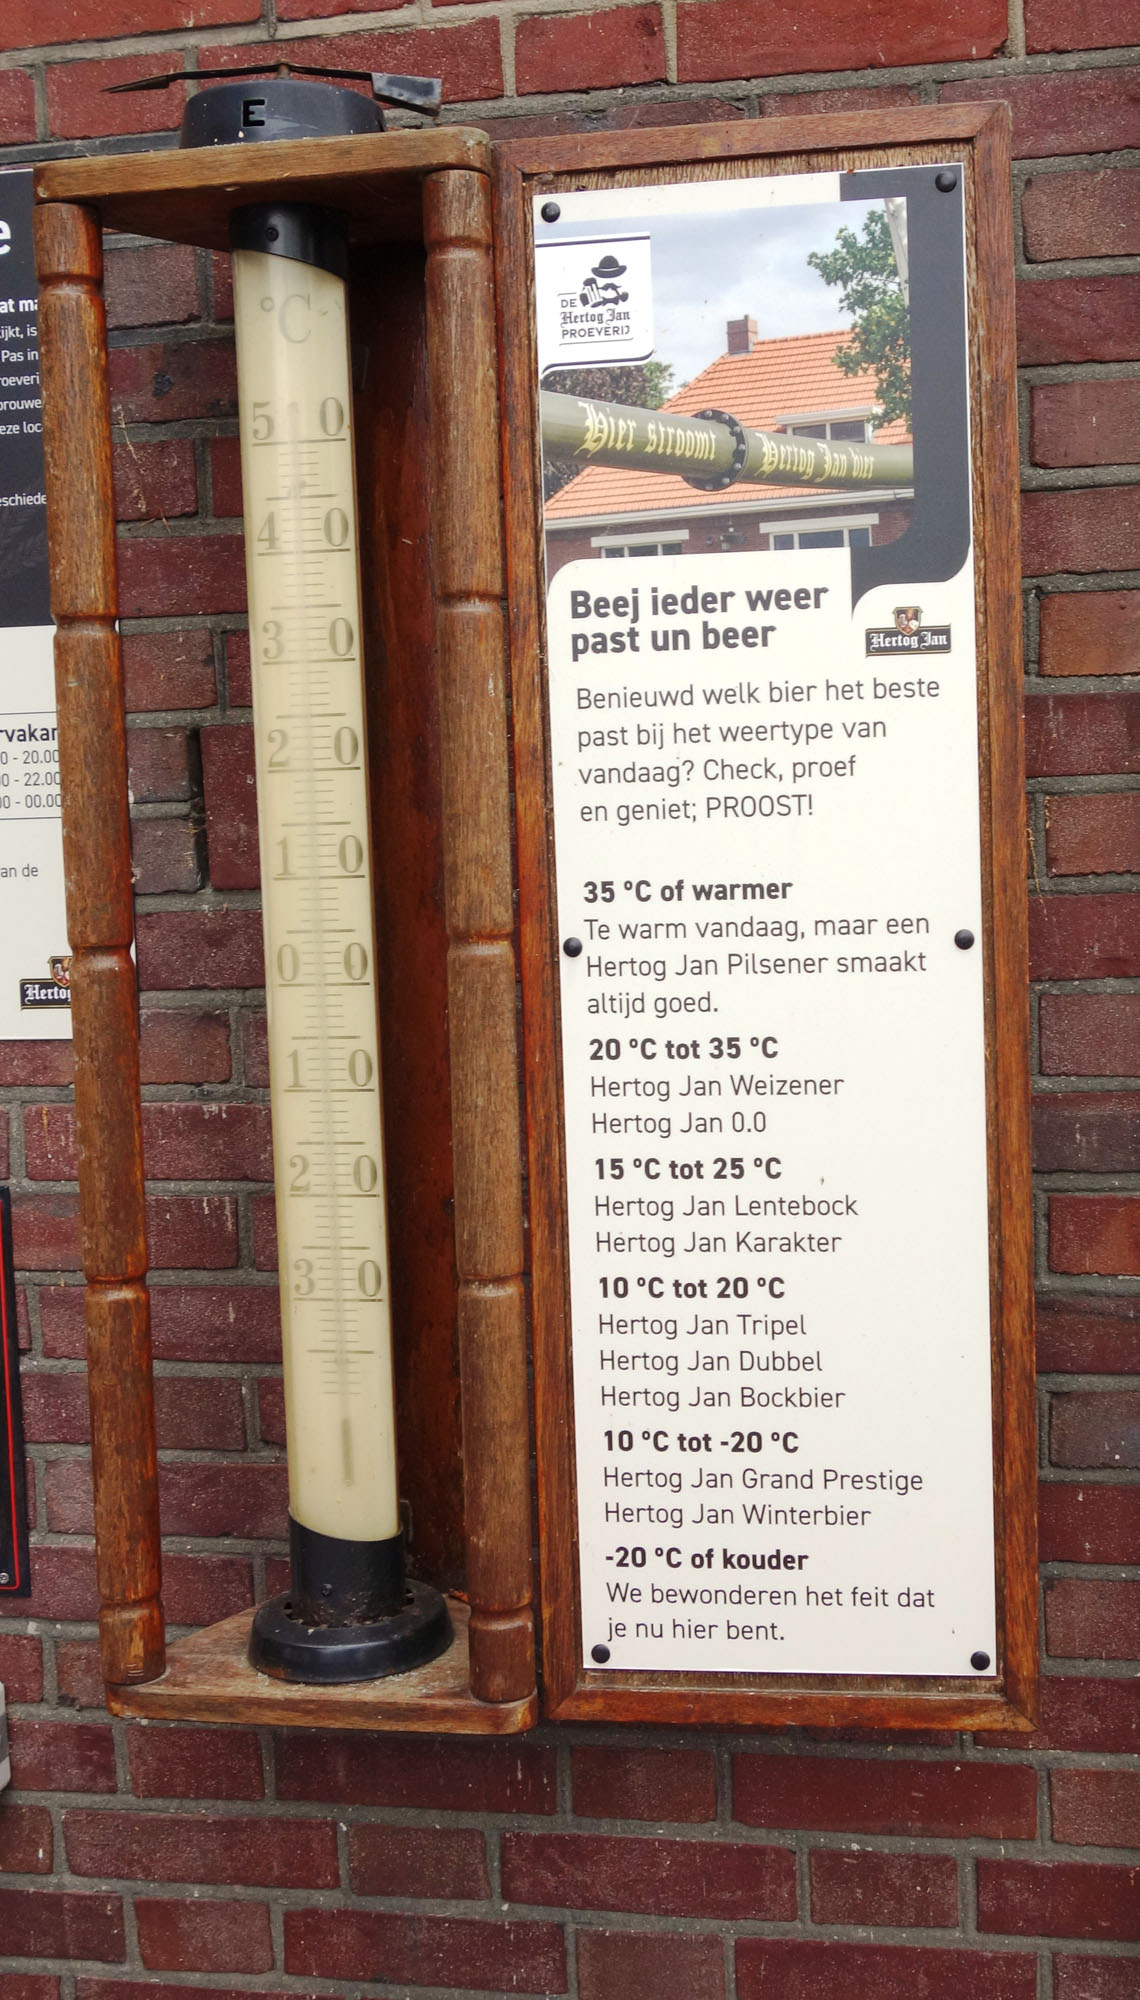 E
°C
5 0
4 0
3 0
2 0
1 0
0 0
1 0
2 0
3 0
DE
Hertog Jan
PROEVERIJ
Bier stroomt Hertog Jan bier
Beej ieder weer
past un beer
Hertog Jan
Benieuwd welk bier het beste
past bij het weertype van
vandaag? Check, proef
en geniet; PROOST!
35 °C of warmer
Te warm vandaag, maar een
Hertog Jan Pilsener smaakt
altijd goed.
20 °C tot 35 °C
Hertog Jan Weizener
Hertog Jan 0.0
15 °C tot 25 °C
Hertog Jan Lentebock
Hertog Jan Karakter
10 °C tot 20 °C
Hertog Jan Tripel
Hertog Jan Dubbel
Hertog Jan Bockbier
10 °C tot -20 °C
Hertog Jan Grand Prestige
Hertog Jan Winterbier
-20 °C of kouder
We bewonderen het feit dat
je nu hier bent.
e
at
is
Pas in
0 - 20.00
00 - 22.00
00 - 00.00
an de